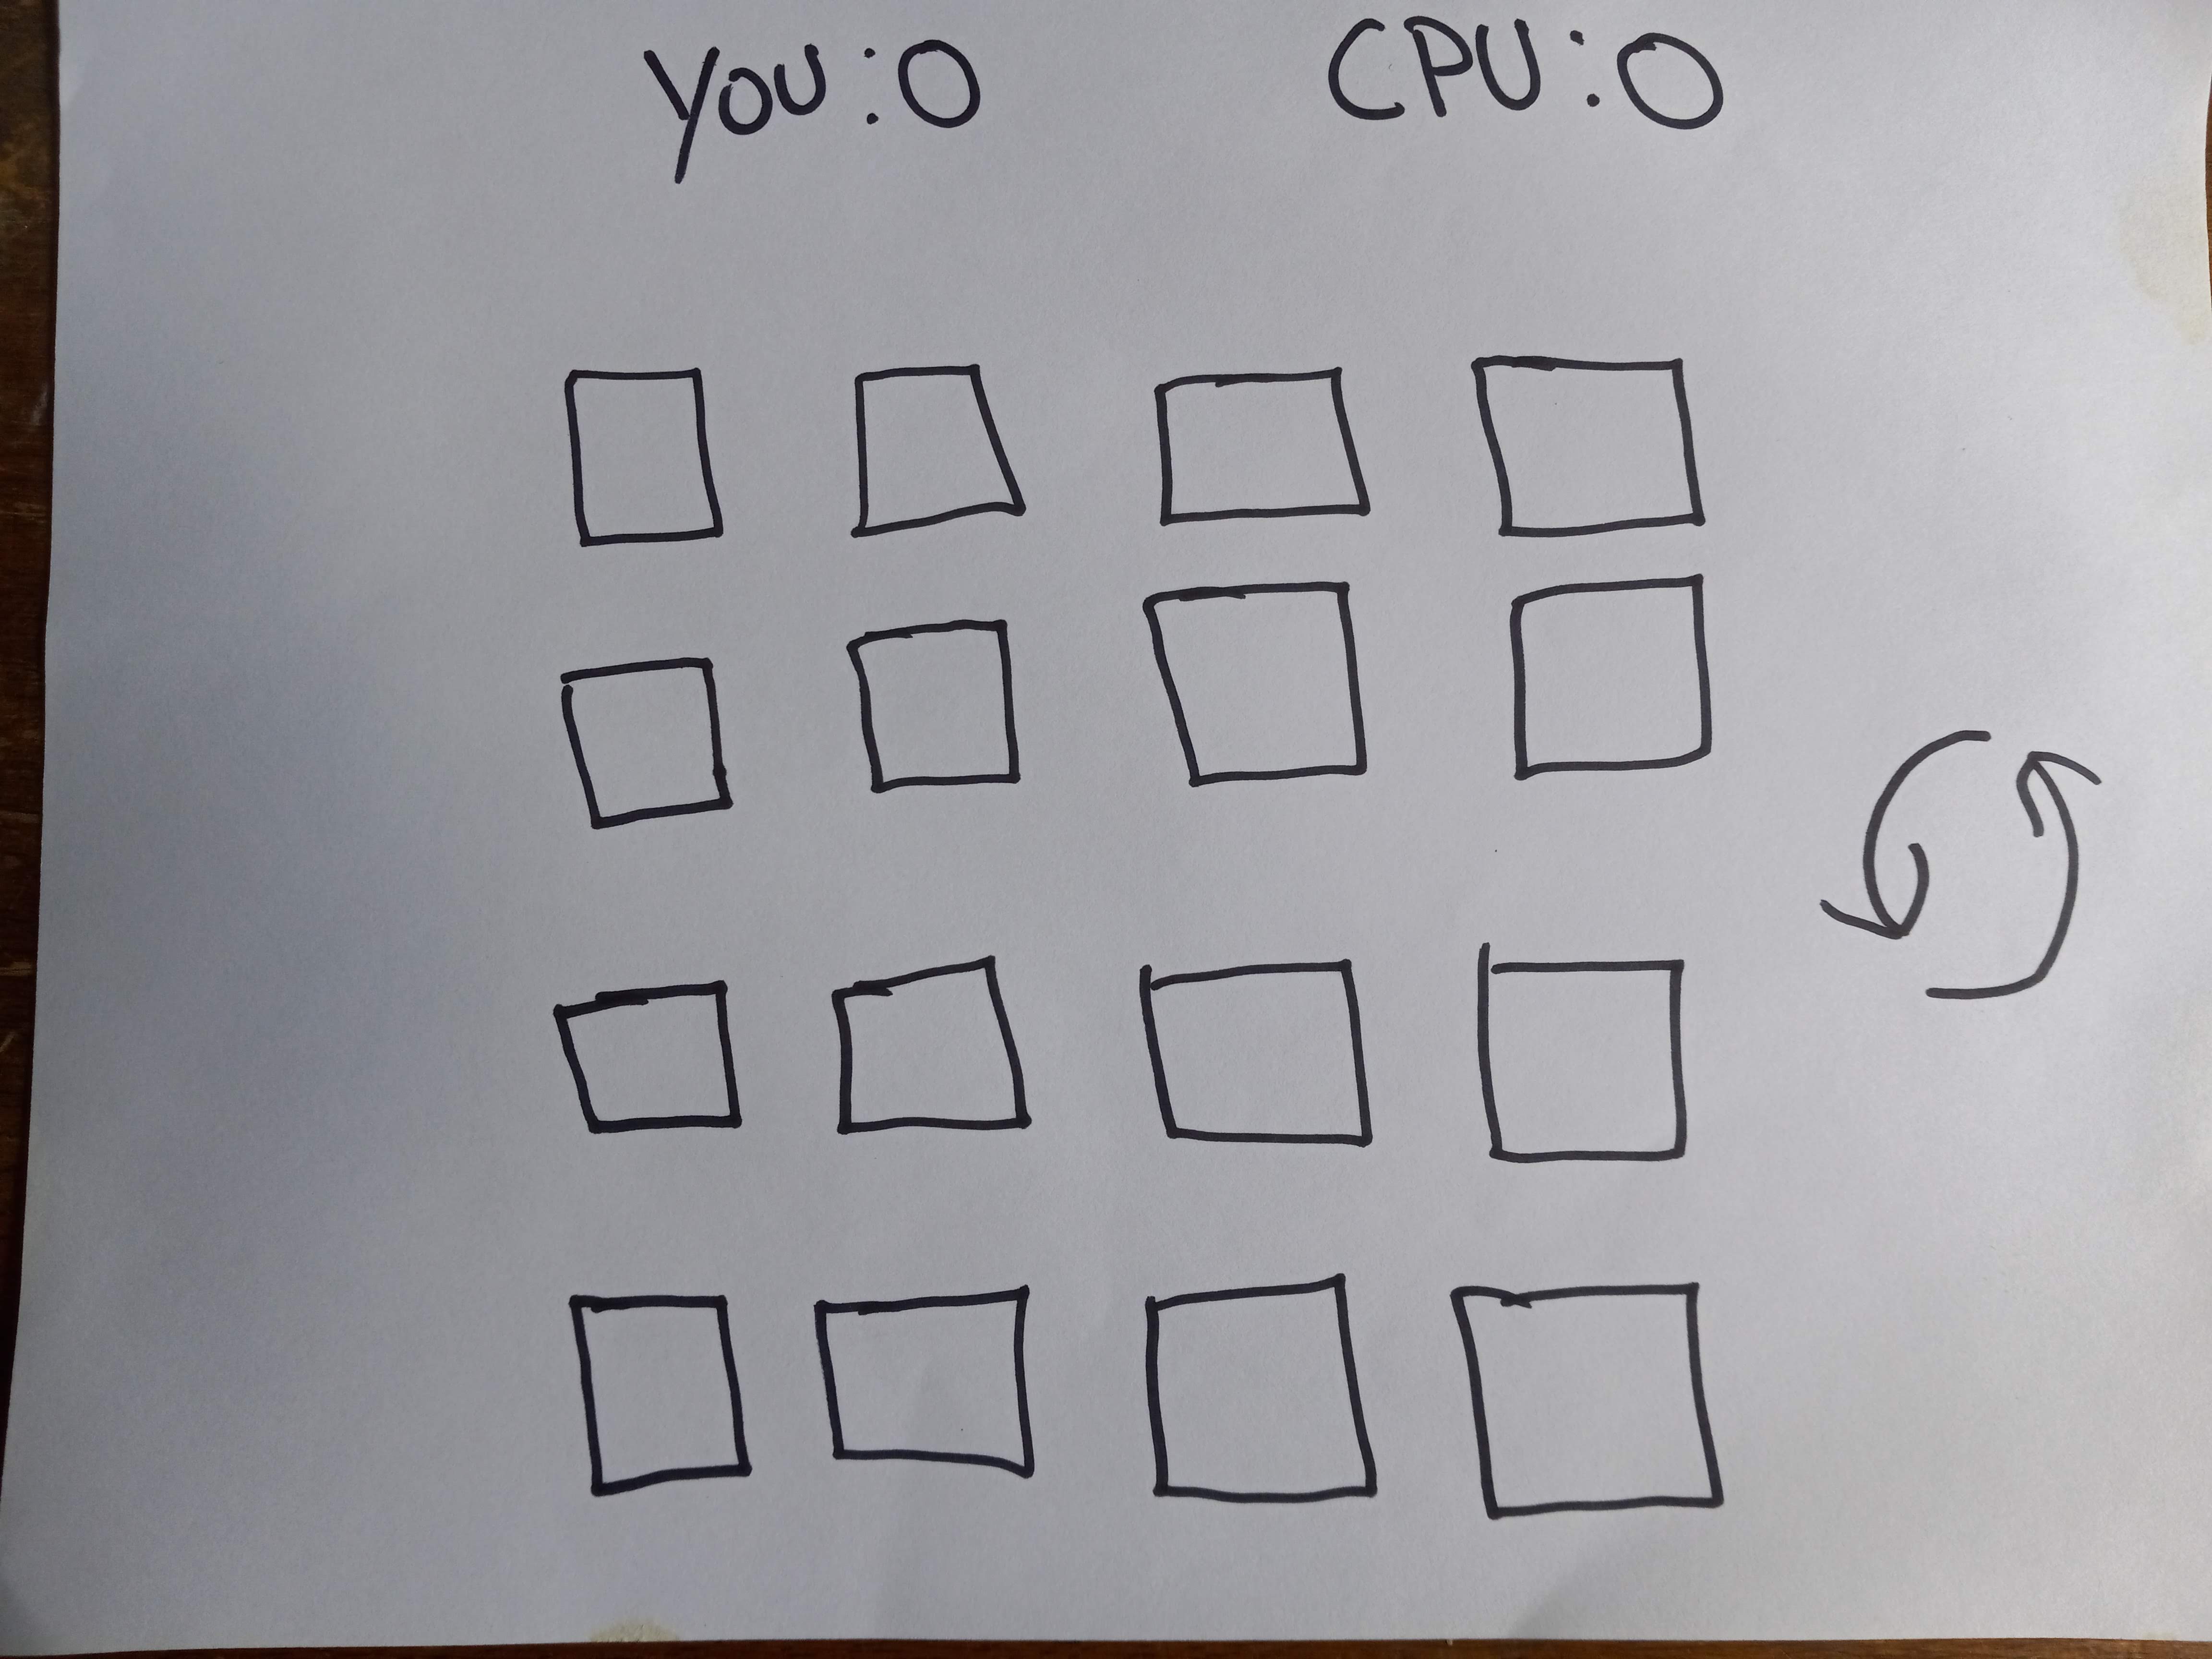 YOU:0 CPU:0